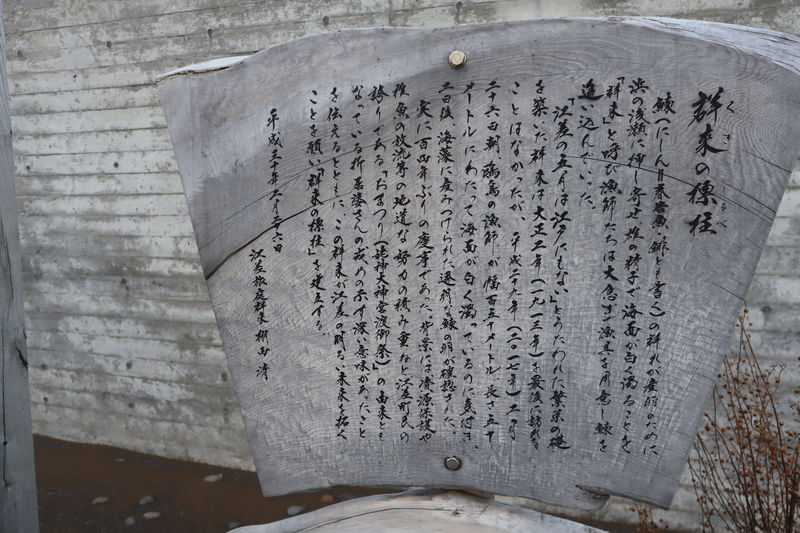 群来の標柱
くき しるべ
鰊(にしん=春告魚・鯡とも書く)の群れが産卵のために
浜の浅瀬に押し寄せ雄の精子で海面が白く濁ることを
「群来」と呼び漁師たちは大急ぎで漁具を用意し鰊を
追い込んでいった。
「江差の五月は江戸にもない」とうたわれた繁栄の礎
を築いた群来は大正二年(一九一三年)を最後に訪れる
ことはなかったが、平成二十九年(二〇一七年)二月
二十六日朝、鴎島の漁師が幅百五十メートル、長さ五十
メートルにわたって海面が白く濁っているのに気付き、
二日後、海藻に産みつけられた透明な鰊の卵が確認された。
実に百四年ぶりの慶事であった。背景には資源保護や
稚魚の放流等の地道な努力の積み重ねと江差町民の
誇りである「おまつり(姥神大神宮渡御祭)」の由来とも
なっている折居婆さんの戒めの示す深い意味があったこと
を伝えるとともに、この群来が江差の明るい未来を拓く
ことを願い「群来の標柱」を建立する。
平成三十年二月二十六日
江差旅庭群来 棚田 清